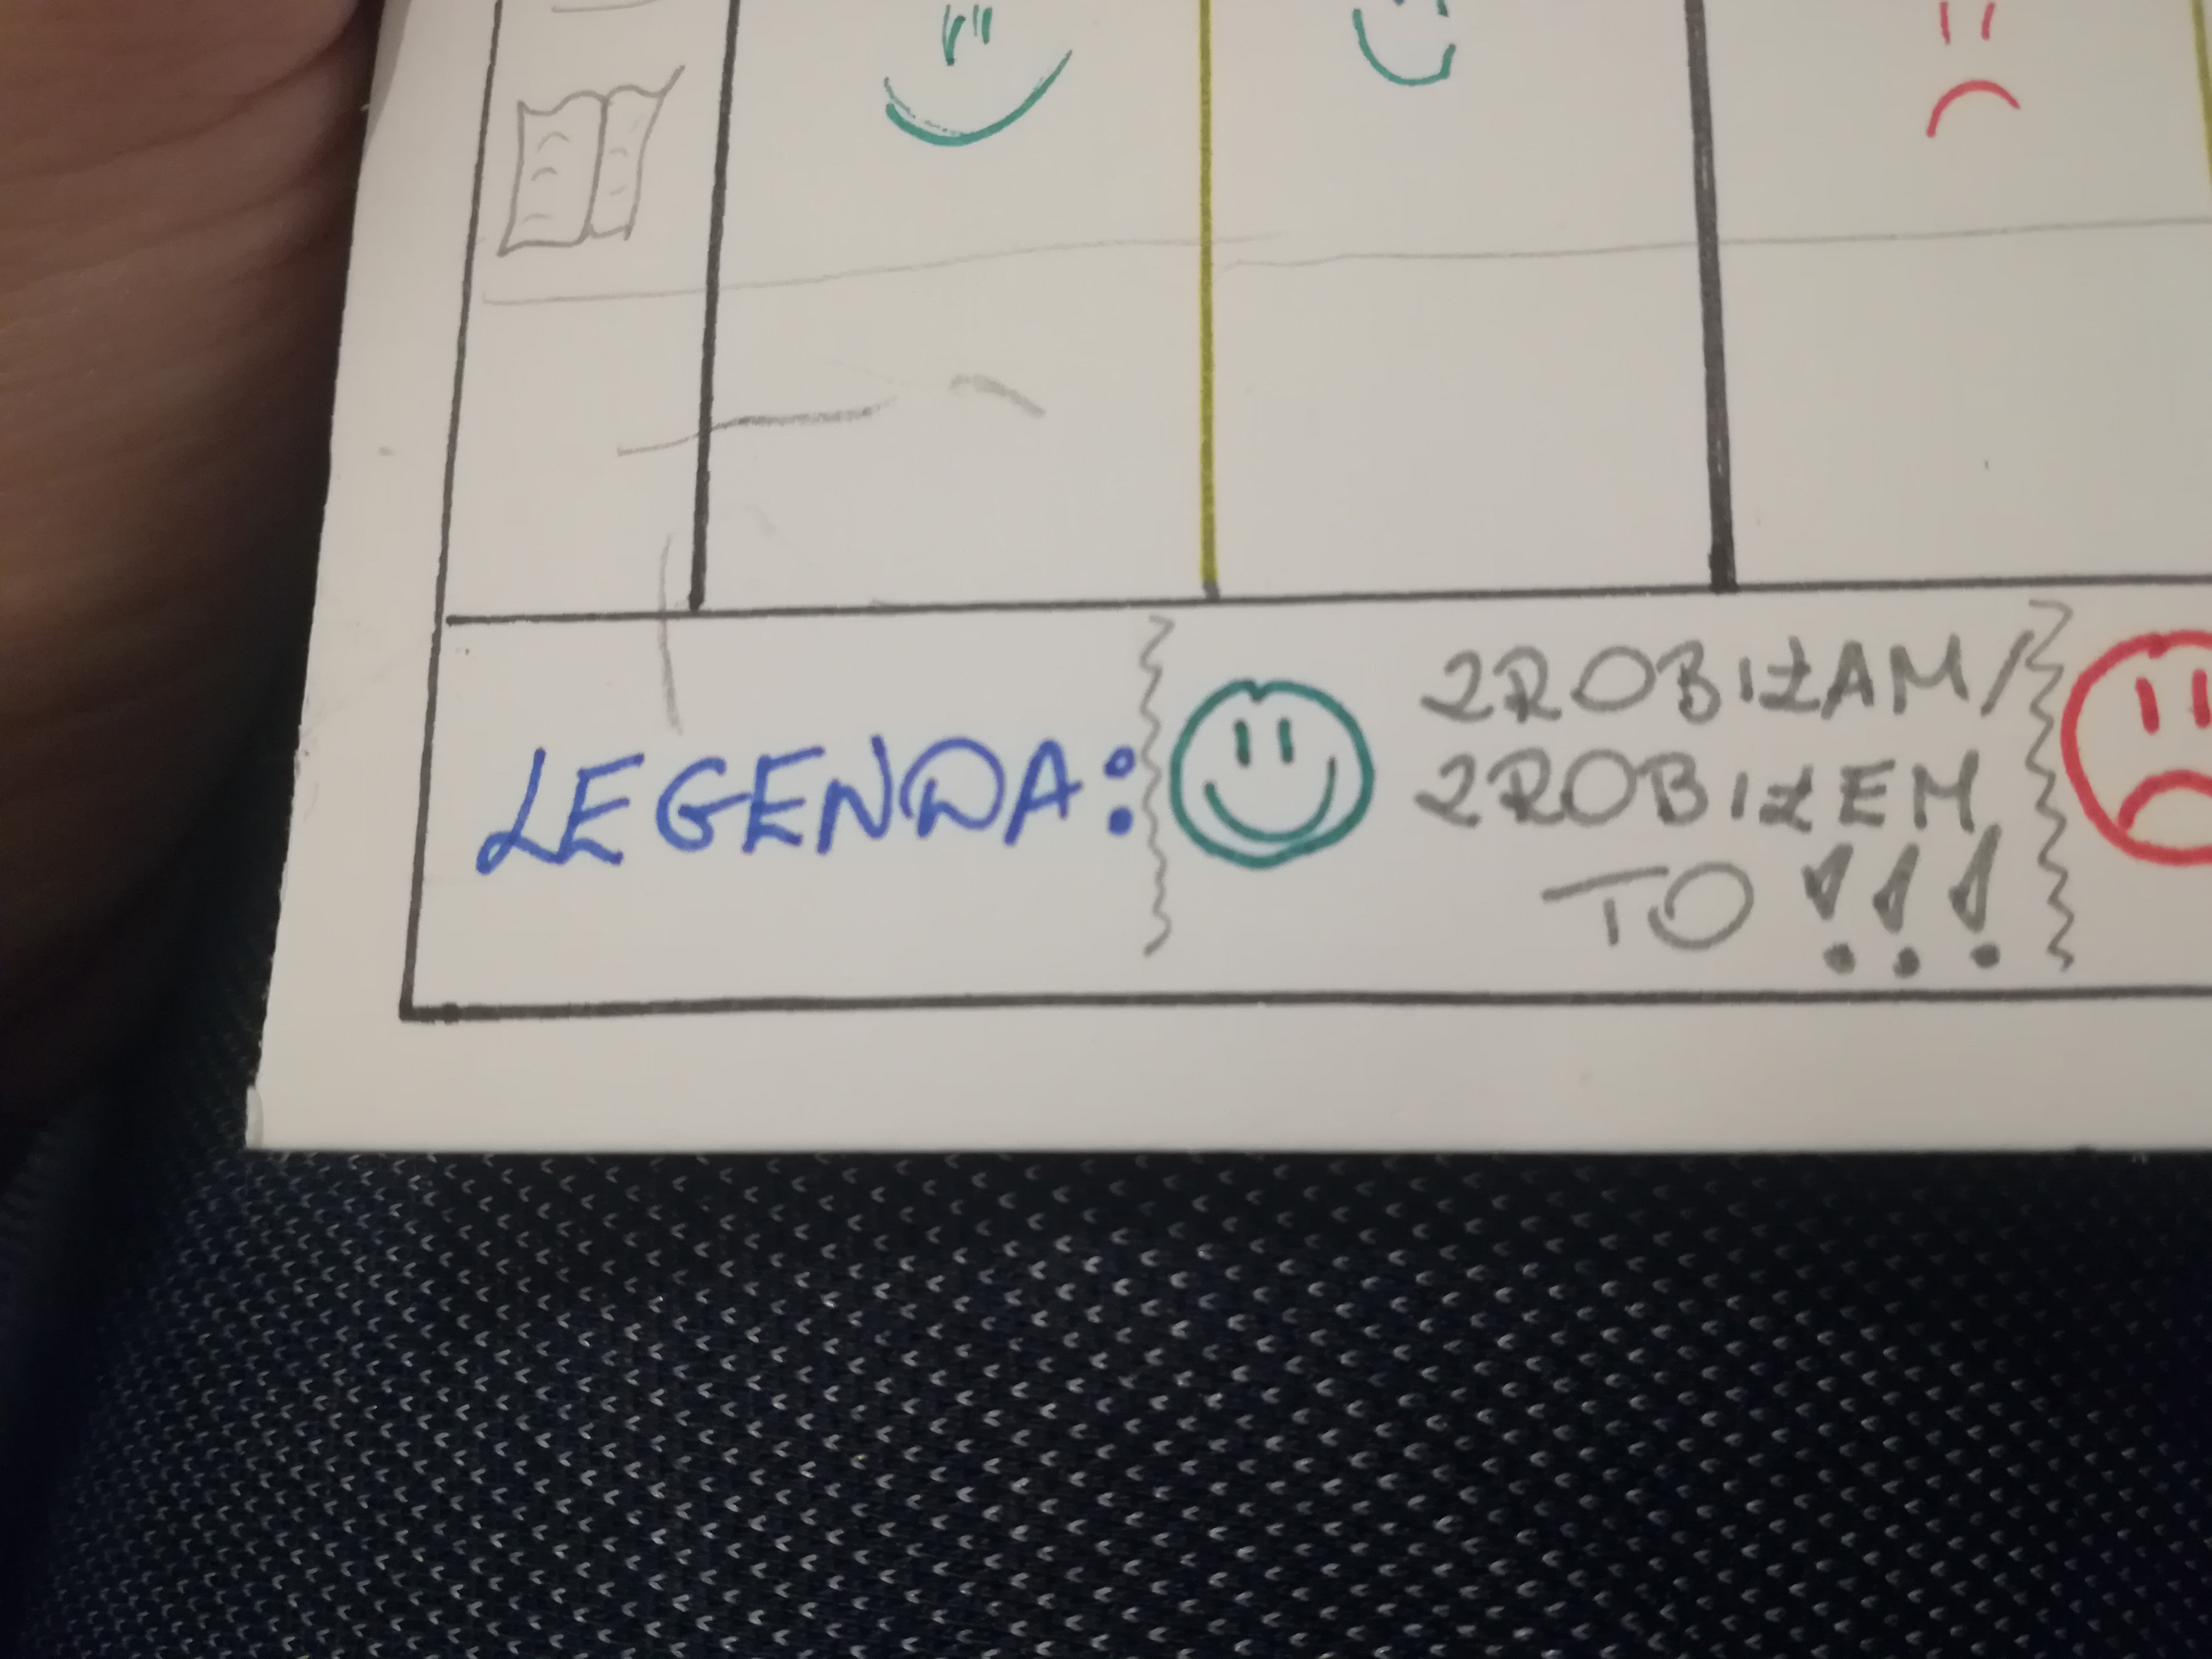 LEGENDA:
ZROBIŁAM/
ZROBIŁEM
TO !!!